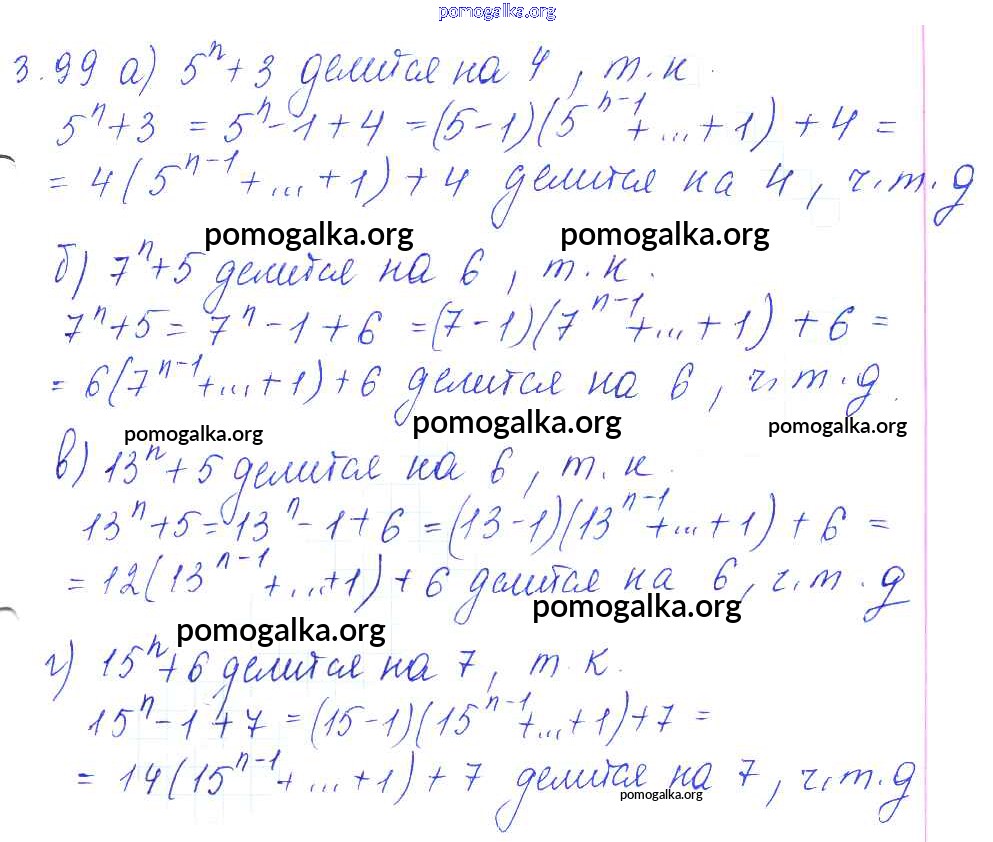 pomogalka.org
3.99 а) 5ⁿ + 3 делится на 4, т.к.
5ⁿ + 3 = 5ⁿ - 1 + 4 = (5 - 1)(5ⁿ⁻¹ + ... + 1) + 4 =
= 4(5ⁿ⁻¹ + ... + 1) + 4 делится на 4, ч.т.д
pomogalka.org pomogalka.org
б) 7ⁿ + 5 делится на 6, т.к.
7ⁿ + 5 = 7ⁿ - 1 + 6 = (7 - 1)(7ⁿ⁻¹ + ... + 1) + 6 =
= 6(7ⁿ⁻¹ + ... + 1) + 6 делится на 6, ч.т.д.
pomogalka.org pomogalka.org pomogalka.org
в) 13ⁿ + 5 делится на 6, т.к.
13ⁿ + 5 = 13ⁿ - 1 + 6 = (13 - 1)(13ⁿ⁻¹ + ... + 1) + 6 =
= 12(13ⁿ⁻¹ + ... + 1) + 6 делится на 6, ч.т.д
pomogalka.org pomogalka.org
г) 15ⁿ + 6 делится на 7, т.к.
15ⁿ - 1 + 7 = (15 - 1)(15ⁿ⁻¹ + ... + 1) + 7 =
= 14(15ⁿ⁻¹ + ... + 1) + 7 делится на 7, ч.т.д
pomogalka.org